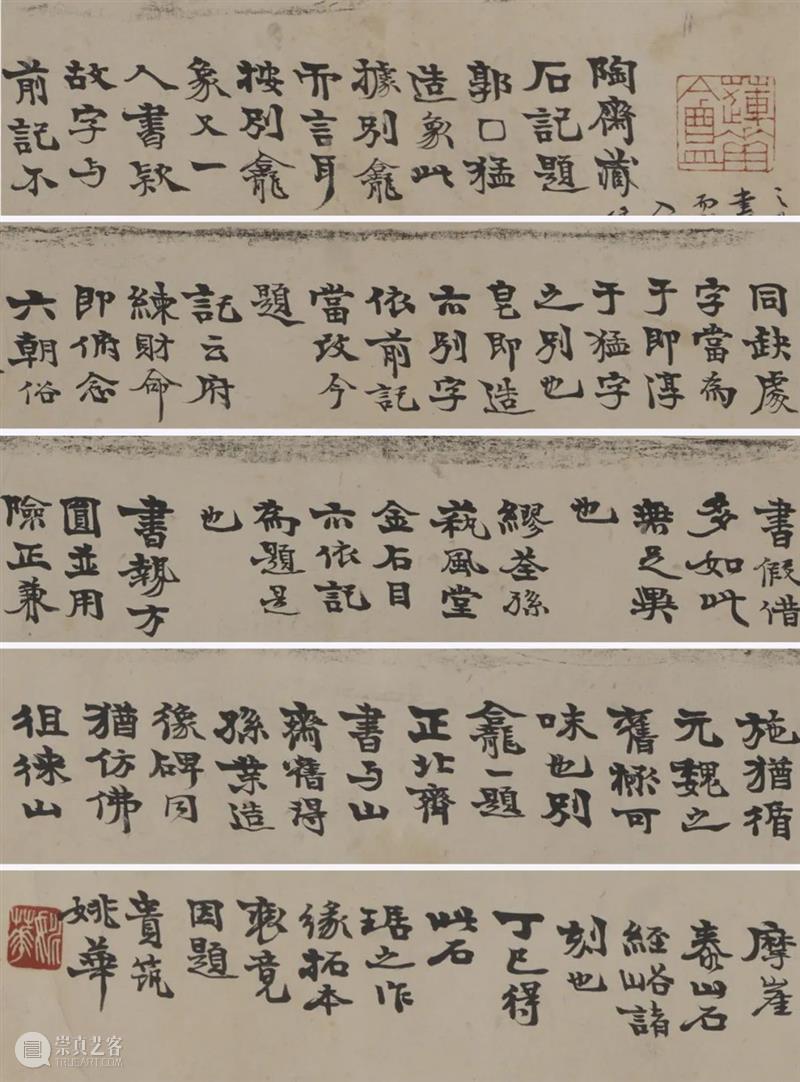 陶齋藏
石記題
郭口猛
造象此
據別龕
而言耳
按別龕
象又一
人書欵
故字与
前記不
同缺處
字當為
于即淳
于猛字
之別也
皀即造
亦別字
依前記
當改今
題
記云府
練財命
即俯念
六朝俗
書假借
多如此
無足異
也
繆荃孫
蓺風堂
金石目
亦依記
為題是
也
書勢方
圓並用
險正兼
施猶循
元魏之
舊極可
味也別
龕一題
正北齊
書与山
齋舊得
孫業造
像碑同
猶仿佛
徂徠山
摩崖
泰山石
經峪諸
刻也
丁巳得
此石
琚之作
緣拓本
裝竟
因題
貴筑
姚華
崇真艺客
TRUEART.COM